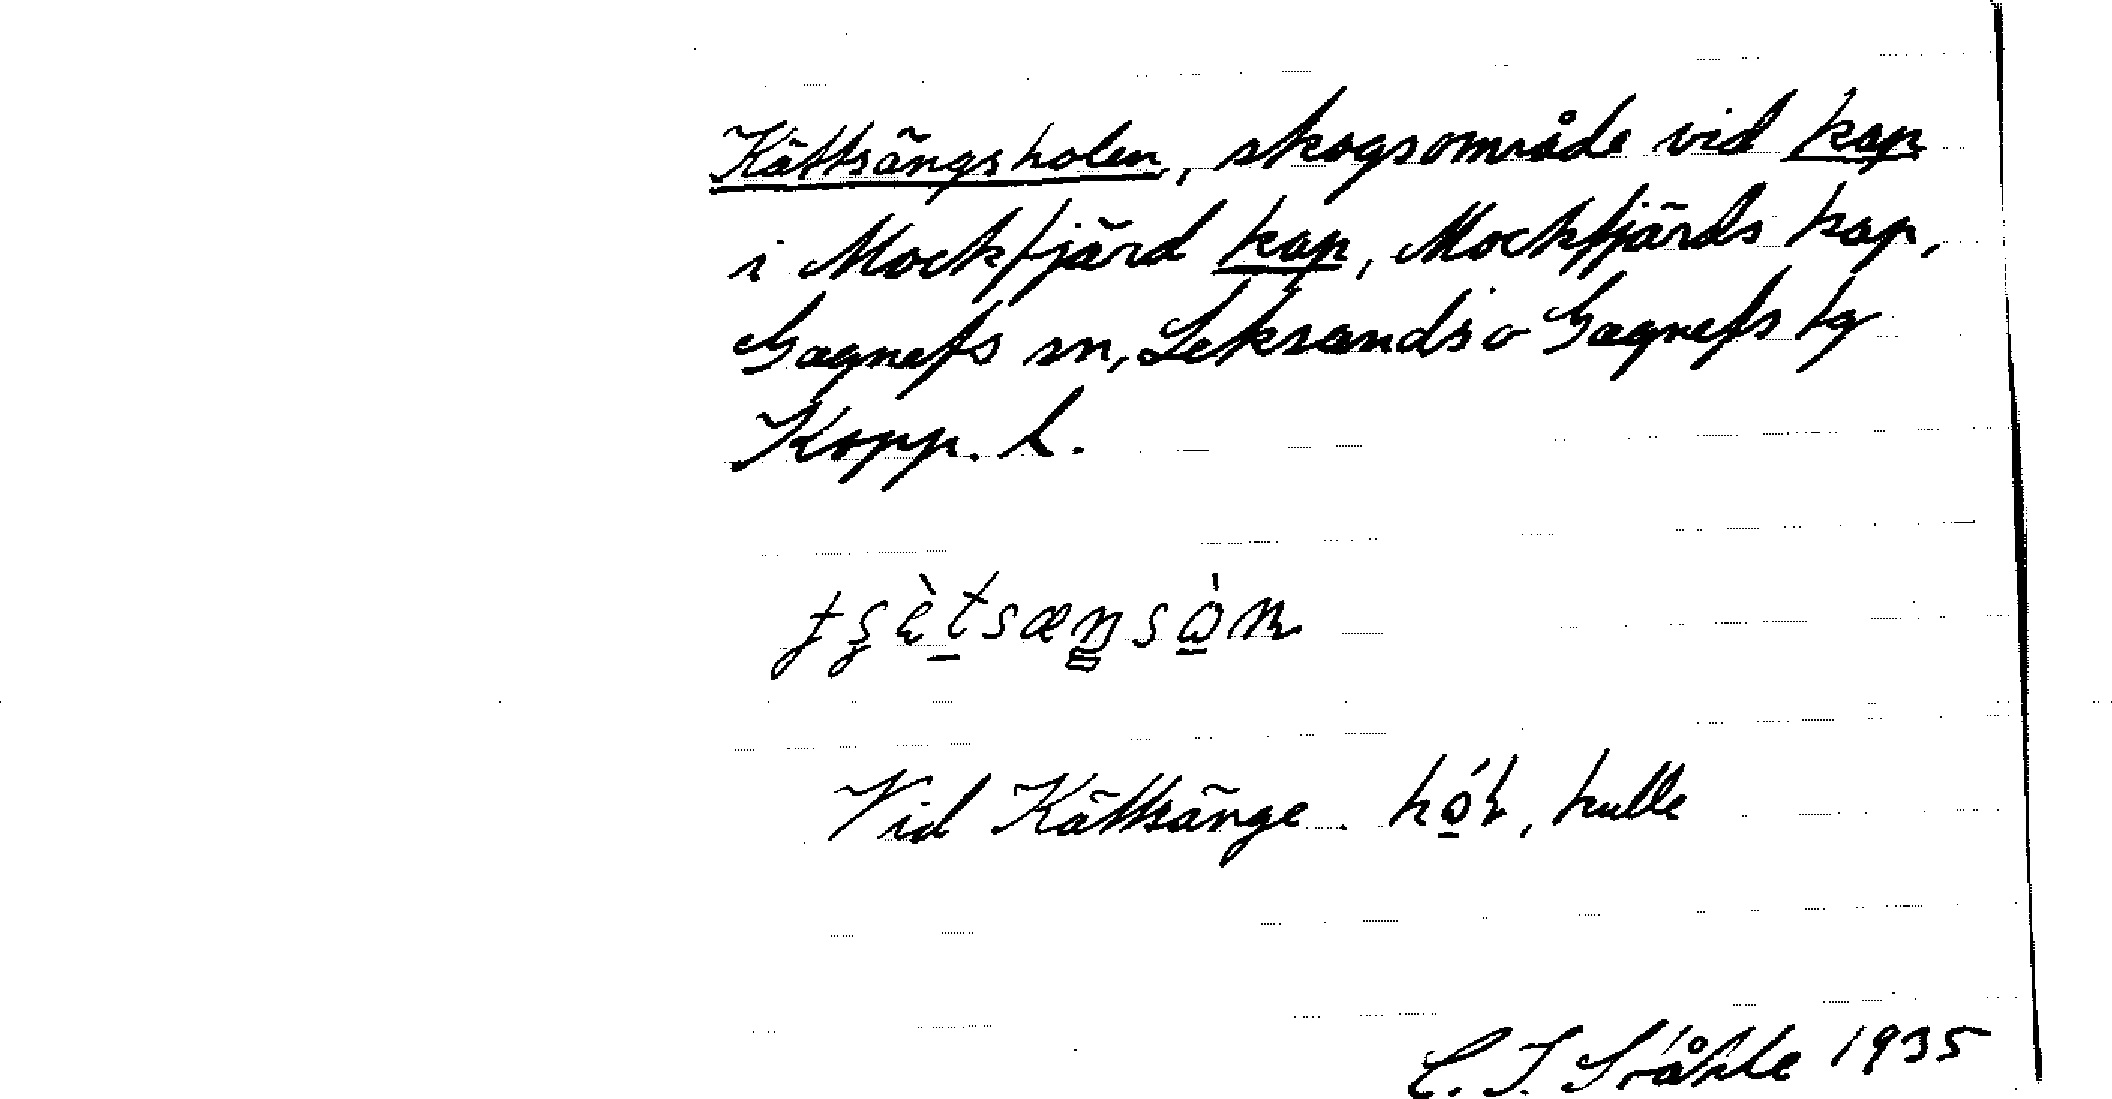 Kättsängsholen, skogsområde vid kap
i Mockfjärd kap, Mockfjärds kap,
Gagnefs sn, Leksands o Gagnefs tg
Kopp. l.
Vid Kättsänge. hulle
C. I. Ståhle 1935